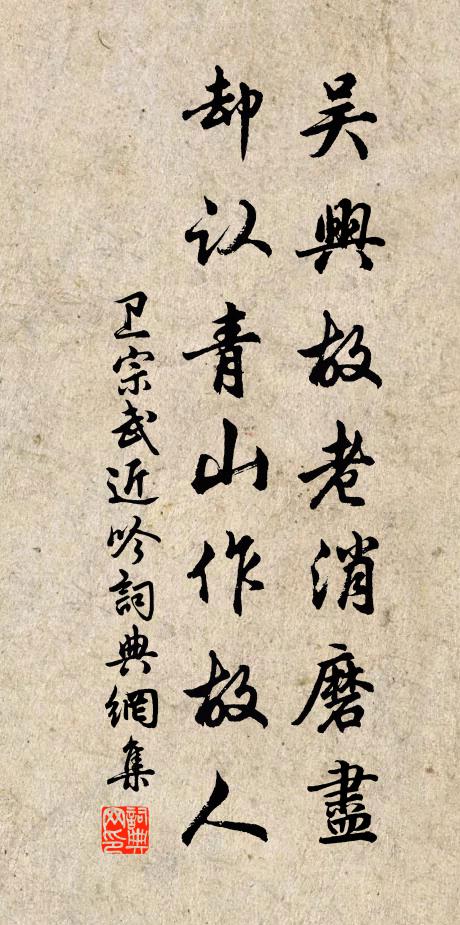 吴興故老消磨盡
却认青山作故人
卫宗武近吟詞典網集
詞典网印